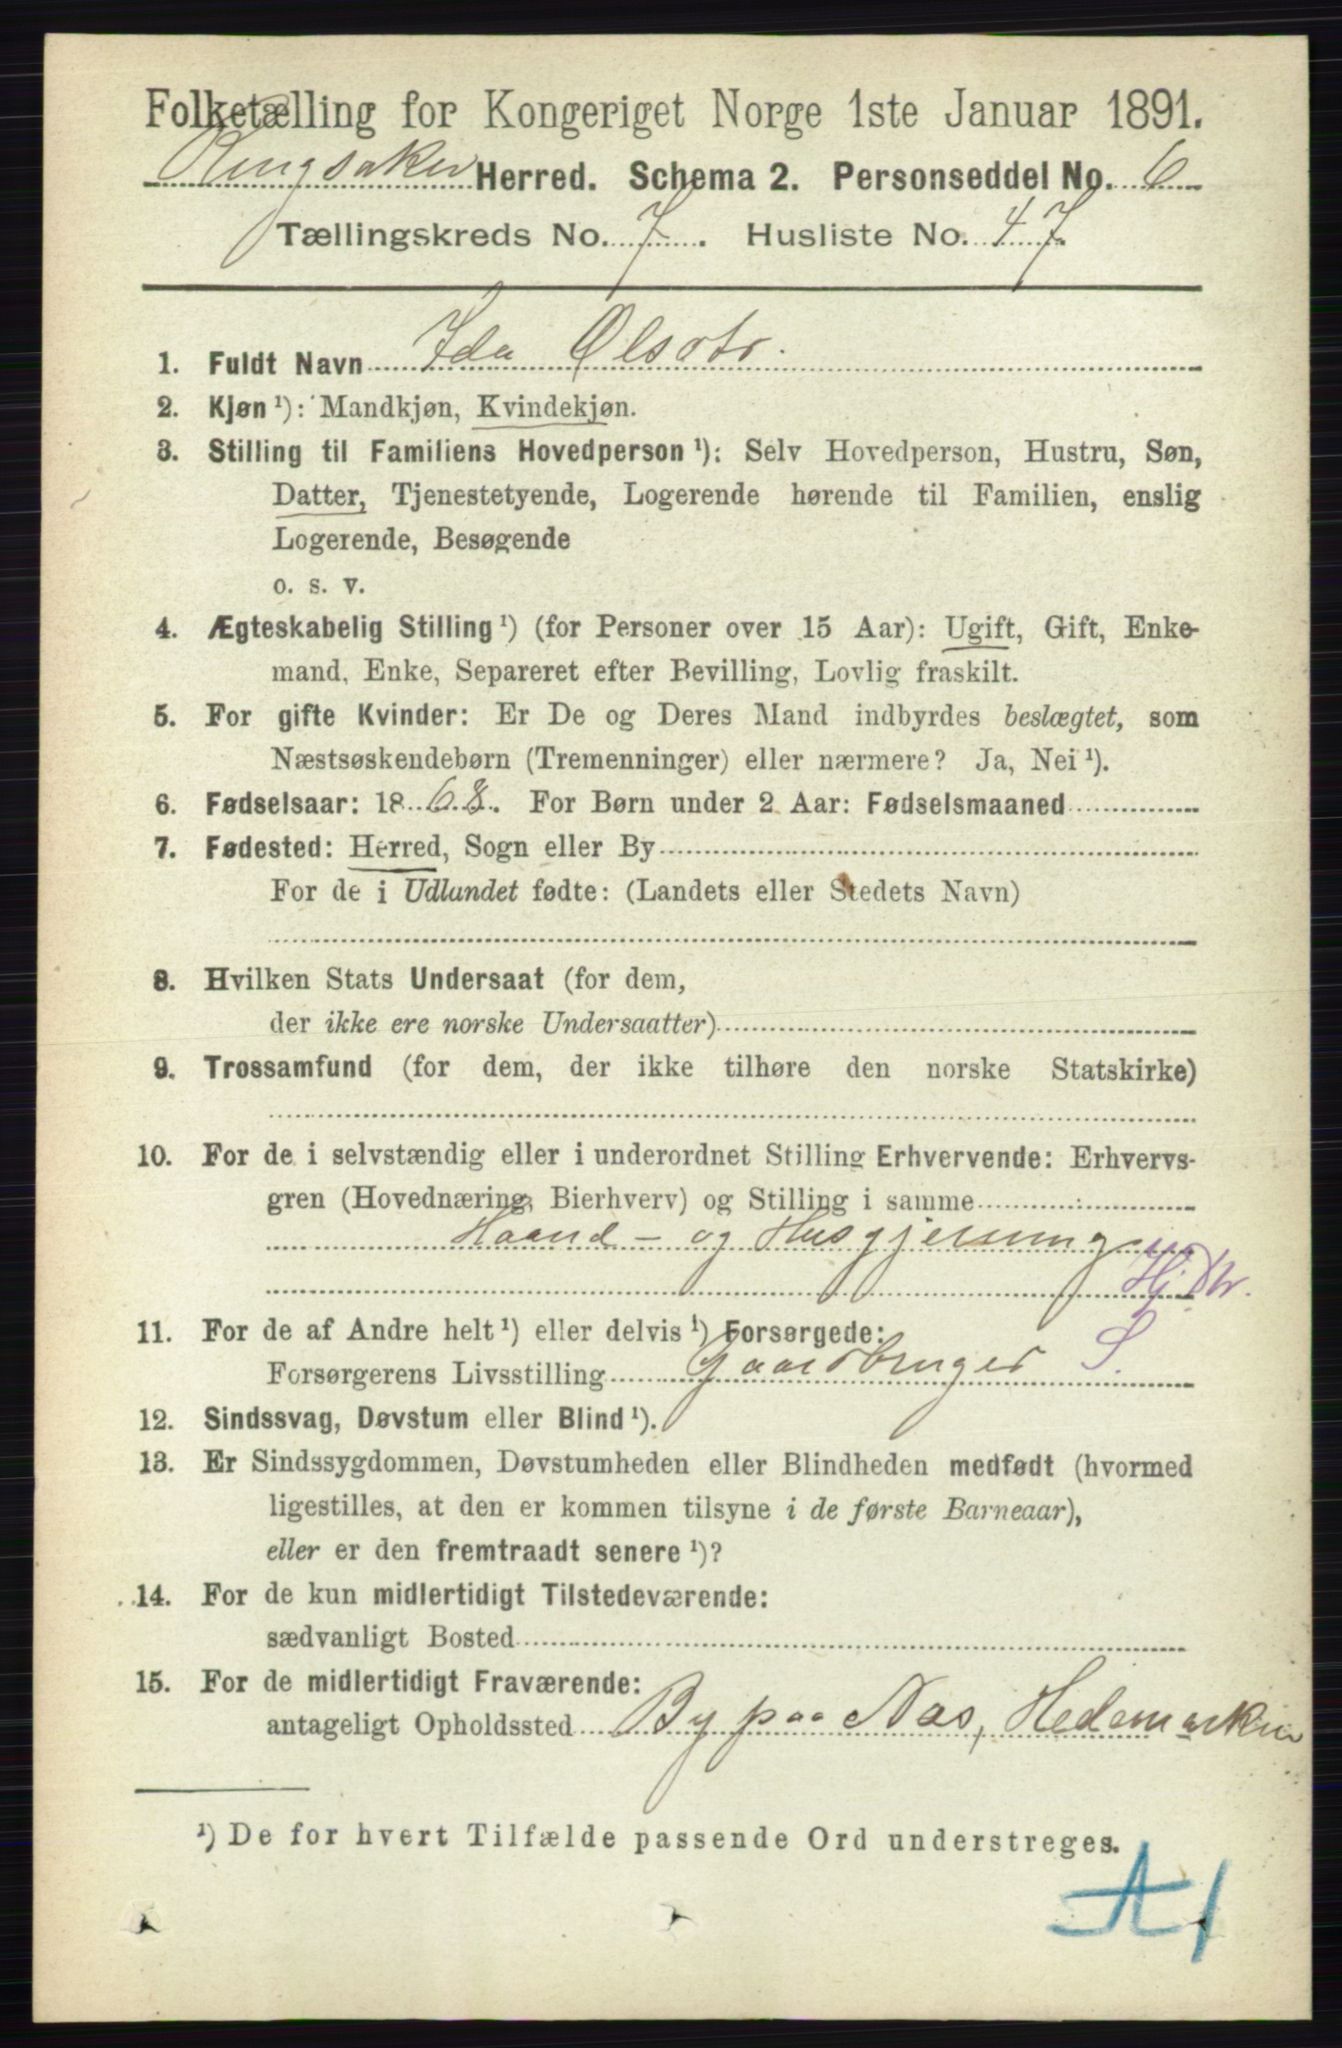 Folketælling for Kongeriget Norge 1ste Januar 1891.
Ringsaker Herred. Schema 2. Personseddel No. 6
Tællingskreds No. 7. Husliste No. 47
1. Fuldt Navn Ida Olsdtr.
2. Kjøn¹): Mandkjøn, Kvindekjøn.
3. Stilling til Familiens Hovedperson¹): Selv Hovedperson, Hustru, Søn,
Datter, Tjenestetyende, Logerende hørende til Familien, enslig
Logerende, Besøgende
o. s. v.
4. Ægteskabelig Stilling¹) (for Personer over 15 Aar): Ugift, Gift, Enke-
mand, Enke, Separeret efter Bevilling, Lovlig fraskilt.
5. For gifte Kvinder: Er De og Deres Mand indbyrdes beslægtet, som
Næstsøskendebørn (Tremenninger) eller nærmere? Ja, Nei¹).
6. Fødselsaar: 1868. For Børn under 2 Aar: Fødselsmaaned
7. Fødested: Herred, Sogn eller By
For de i Udlandet fødte: (Landets eller Stedets Navn)
8. Hvilken Stats Undersaat (for dem,
der ikke ere norske Undersaatter)
9. Trossamfund (for dem, der ikke tilhøre den norske Statskirke)
10. For de i selvstændig eller i underordnet Stilling Erhvervende: Erhvervs-
gren (Hovednæring, Bierhverv) og Stilling i samme
Haand- og Husgjerning
Hj. Dtr.
11. For de af Andre helt¹) eller delvis¹) Forsørgede:
Forsørgerens Livsstilling Gaardbruger S.
12. Sindssvag, Døvstum eller Blind¹).
13. Er Sindssygdommen, Døvstumheden eller Blindheden medfødt (hvormed
ligestilles, at den er kommen tilsyne i de første Barneaar),
eller er den fremtraadt senere¹)?
14. For de kun midlertidigt Tilstedeværende:
sædvanligt Bosted
15. For de midlertidigt Fraværende:
antageligt Opholdssted By paa Næs, Hedemarken
¹) De for hvert Tilfælde passende Ord understreges.
A1